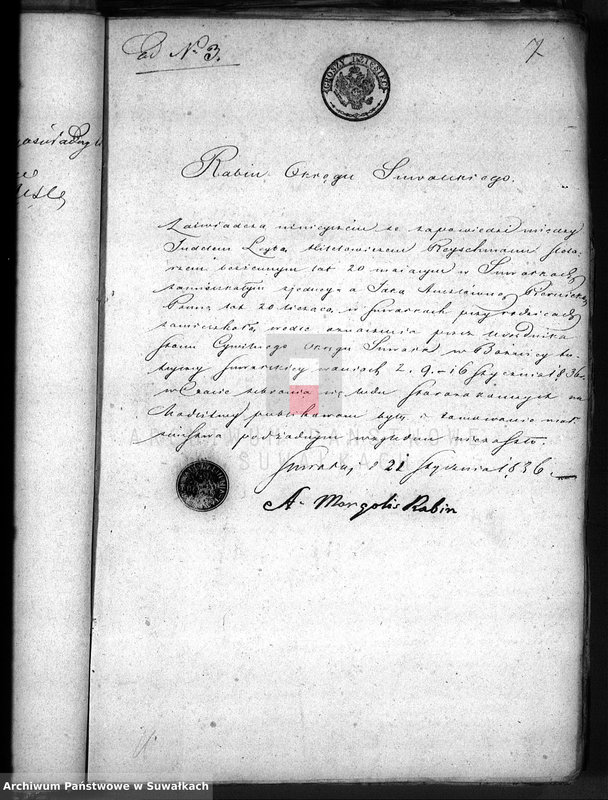 ad N. 3.
7
GROSZY DZIESIĘĆ
Rabin Okręgu Suwalskiego.
Zaświadcza niniejszém że zapowiedzi między
Judelem Leybą Reyschmann stola-
rzem bezżennym lat 20 maiącym w Suwałkach
zamieszkałym a
Panną lat 20 liczącą, w Suwałkach przy rodzicach
zamieszkałą, wedle oznaczenia przez Urzędnika
Stanu Cywilnego Okręgu Suwałk w Boznicy tu-
teyszey Suwalskiey w dniach 2. 9. i 16 Stycznia 1836.
w Czasie zebrania się ludu Starozakonnych na
Modlitwy publikowane były i tamowanie mał-
żeństwa pod żadnym względem nie zaszło
Suwałki, d 21 Stycznia 1836.
A. Morgolis Rabin
Archiwum Państwowe w Suwałkach